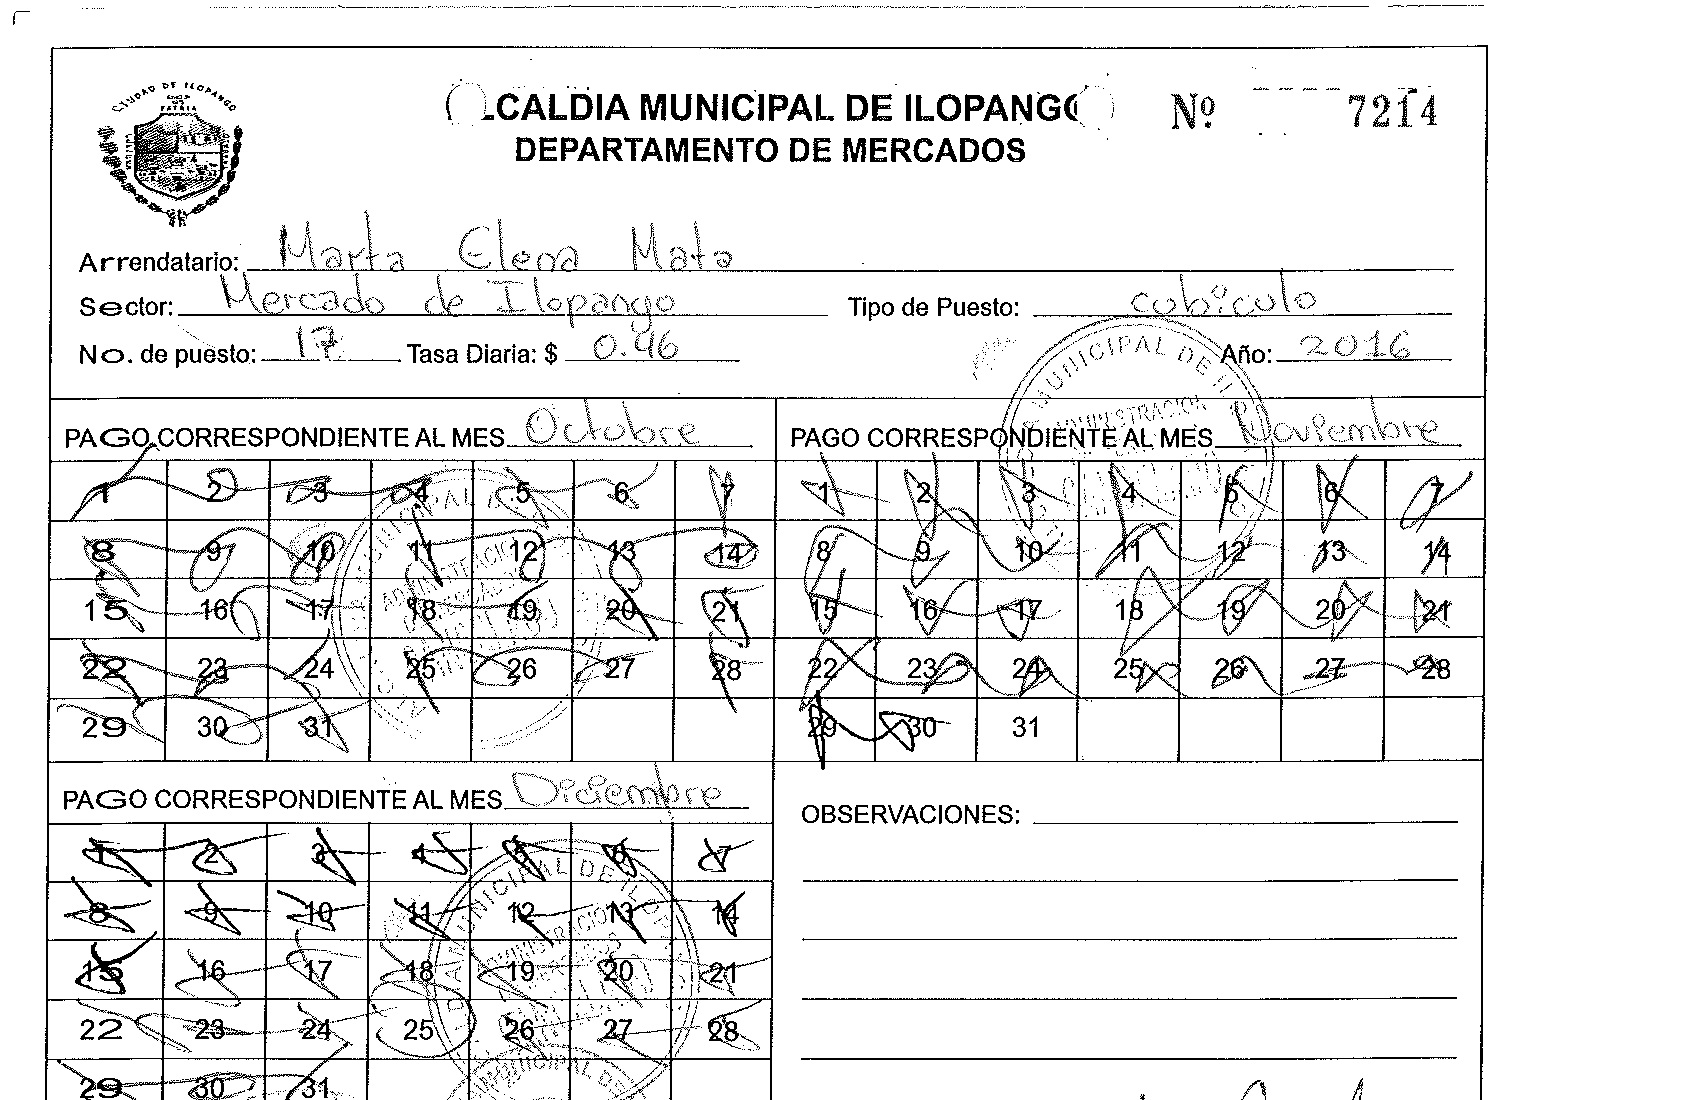 CIUDAD DE ILOPANGO
PATRIA
ALCALDIA MUNICIPAL DE ILOPANGO Nº 7214
DEPARTAMENTO DE MERCADOS
Arrendatario: Marta Elena Mata
Sector: Mercado de Ilopango Tipo de Puesto: cubiculo
No. de puesto: 17 Tasa Diaria: $ 0.46 Año: 2016
PAGO CORRESPONDIENTE AL MES Octubre
1 2 3 4 5 6 7
8 9 10 11 12 13 14
15 16 17 18 19 20 21
22 23 24 25 26 27 28
29 30 31
PAGO CORRESPONDIENTE AL MES Noviembre
1 2 3 4 5 6 7
8 9 10 11 12 13 14
15 16 17 18 19 20 21
22 23 24 25 26 27 28
29 30 31
PAGO CORRESPONDIENTE AL MES Diciembre
1 2 3 4 5 6 7
8 9 10 11 12 13 14
15 16 17 18 19 20 21
22 23 24 25 26 27 28
29 30 31
OBSERVACIONES:
MUNICIPAL DE
ADMINISTRACION